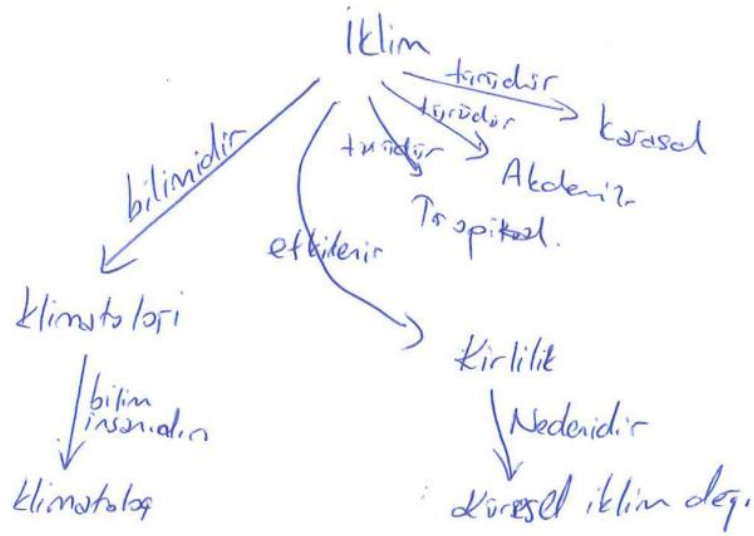 İklim
türüdür
Karasal
türüdür
Akdeniz
türüdür
Tropikal.
bilimidir
etkilenir
Klimatoloji
Kirlilik
bilim
insanıdır
Nedenidir
Klimatolog
Küresel iklim değ.